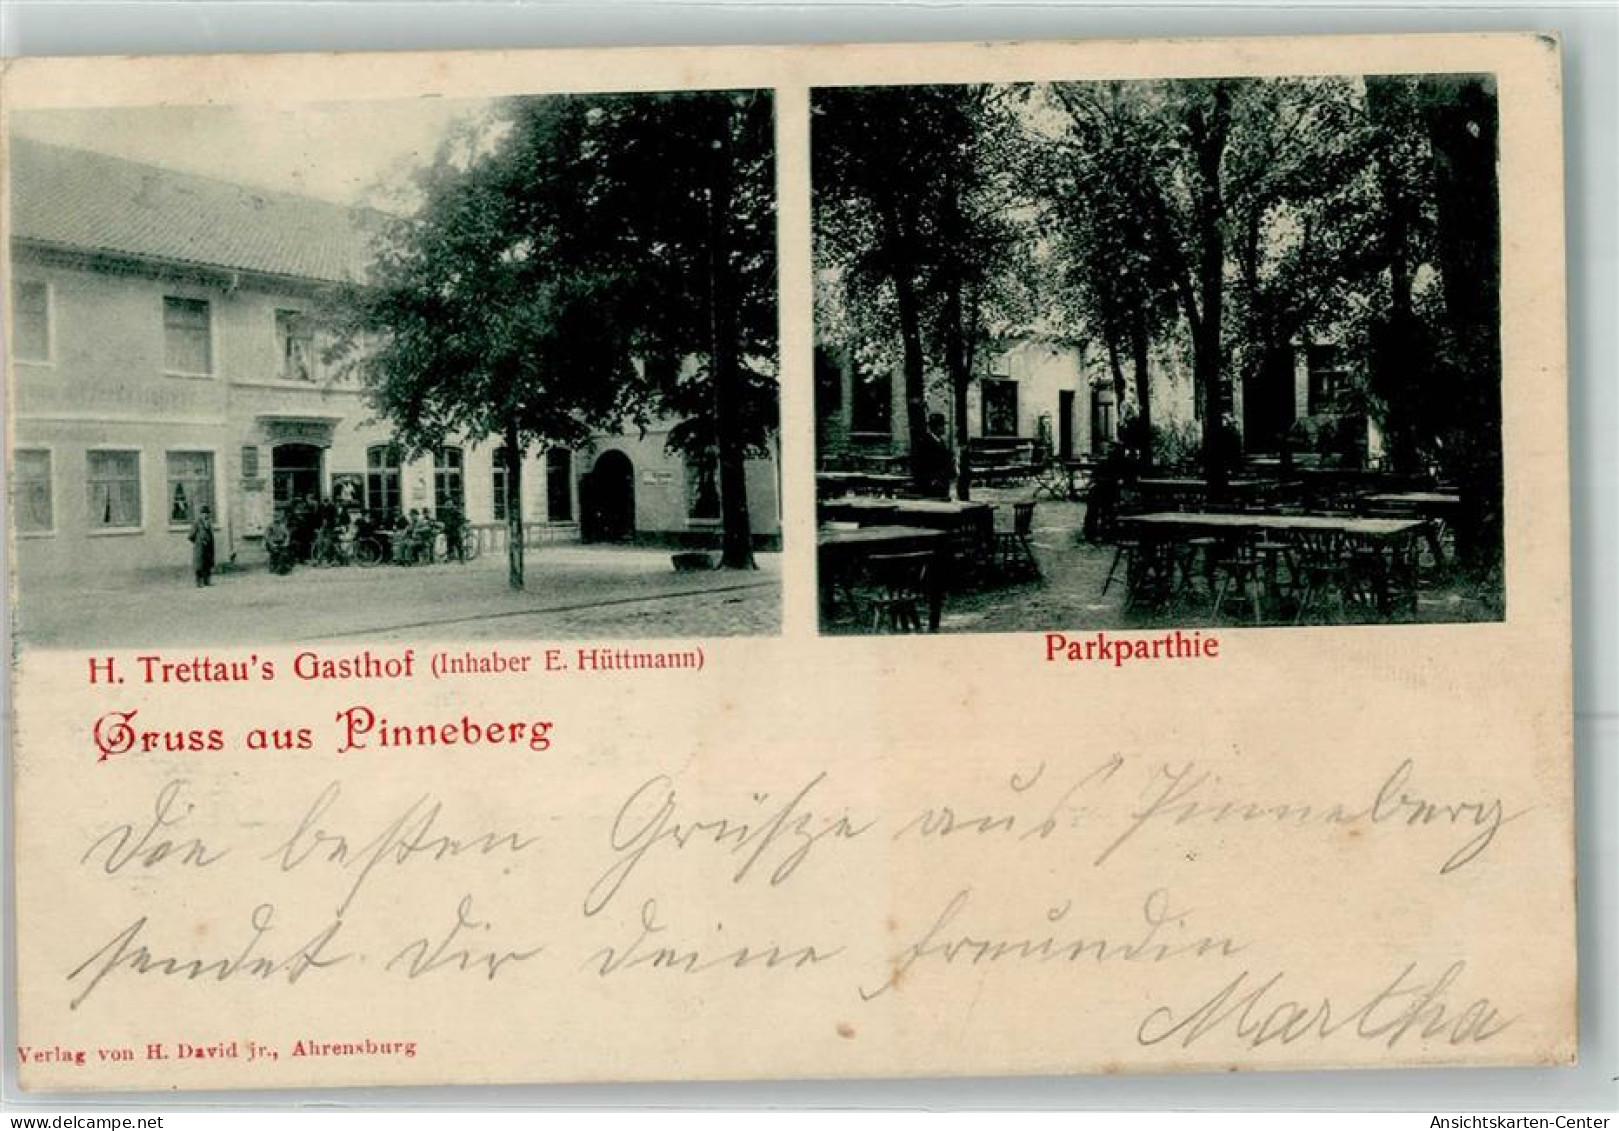 H. Trettau's Gasthof (Inhaber E. Hüttmann)
Parkparthie
Gruss aus Pinneberg
Die besten Grüsze aus Pinneberg
sendet Dir deine freundin
Martha
Verlag von H. David jr., Ahrensburg
Ansichtskarten-Center